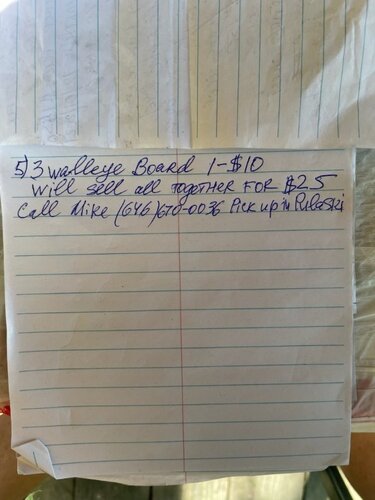 5) 3 walleye Board 1-$10
will sell all together FOR $25
Call Mike (646) 670-0036 Pick up in Pulaski